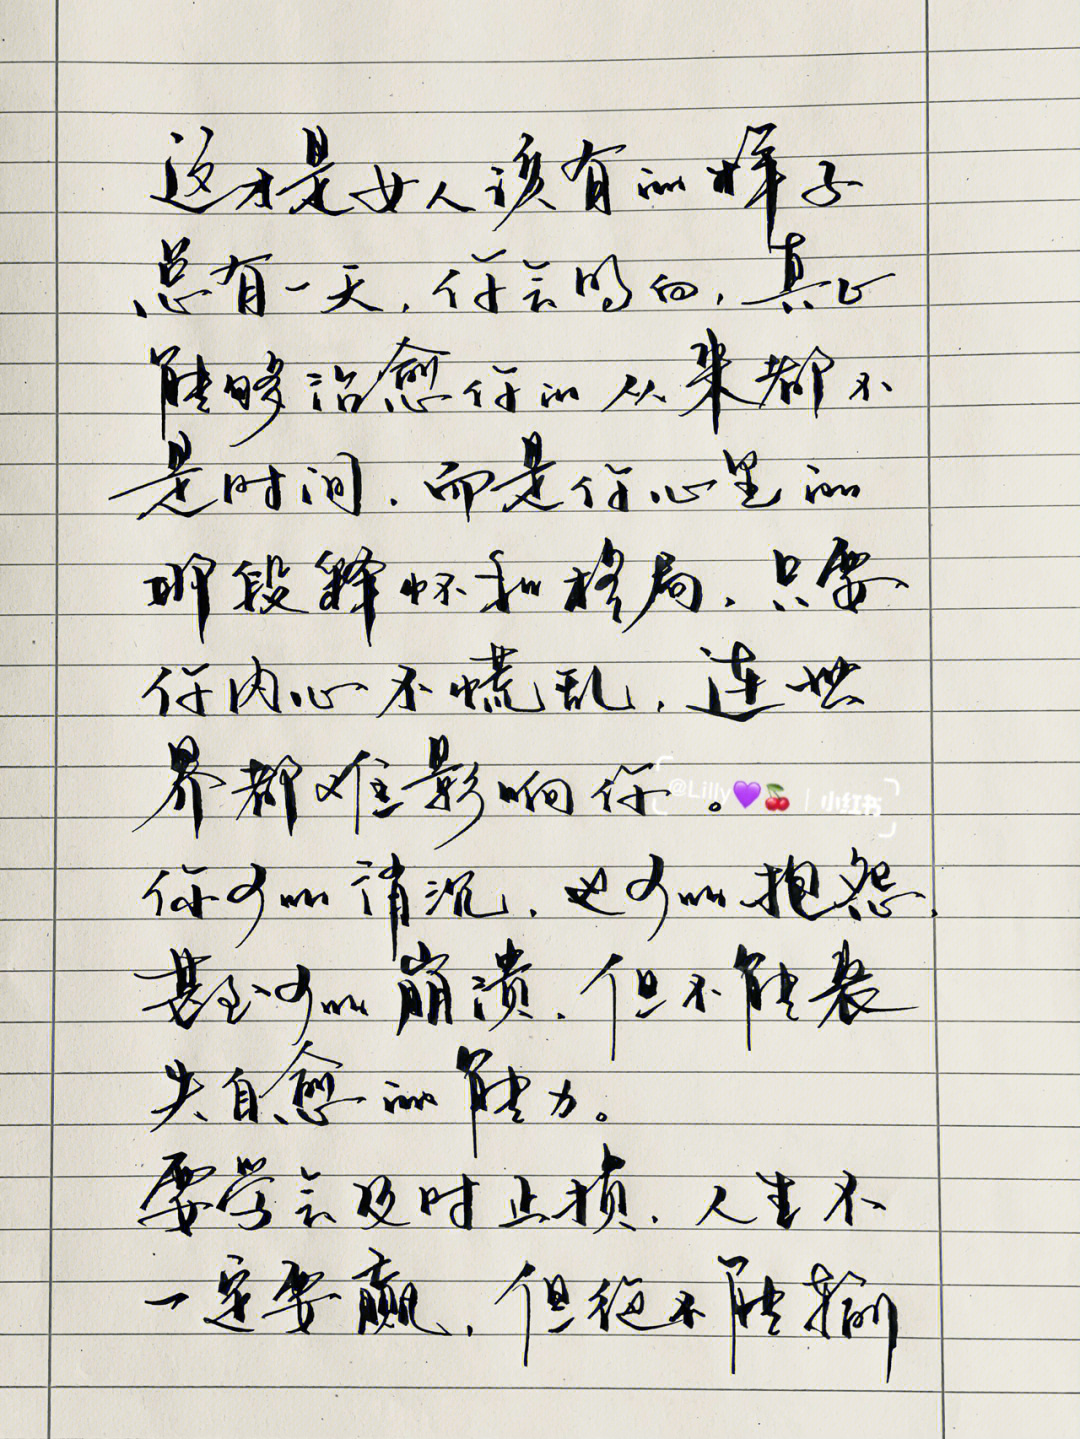 这才是女人该有的样子
总有一天，你会明白，真正
能够治愈你的从来都不
是时间，而是你心里的
那段释怀和格局，只要
你内心不慌乱，连世
界都难影响你。
@Lilly💜🍒 | 小红书
你可以消沉，也可以抱怨，
甚至可以崩溃，但不能丧
失自愈的能力。
要学会及时止损，人生不
一定要赢，但绝不能输